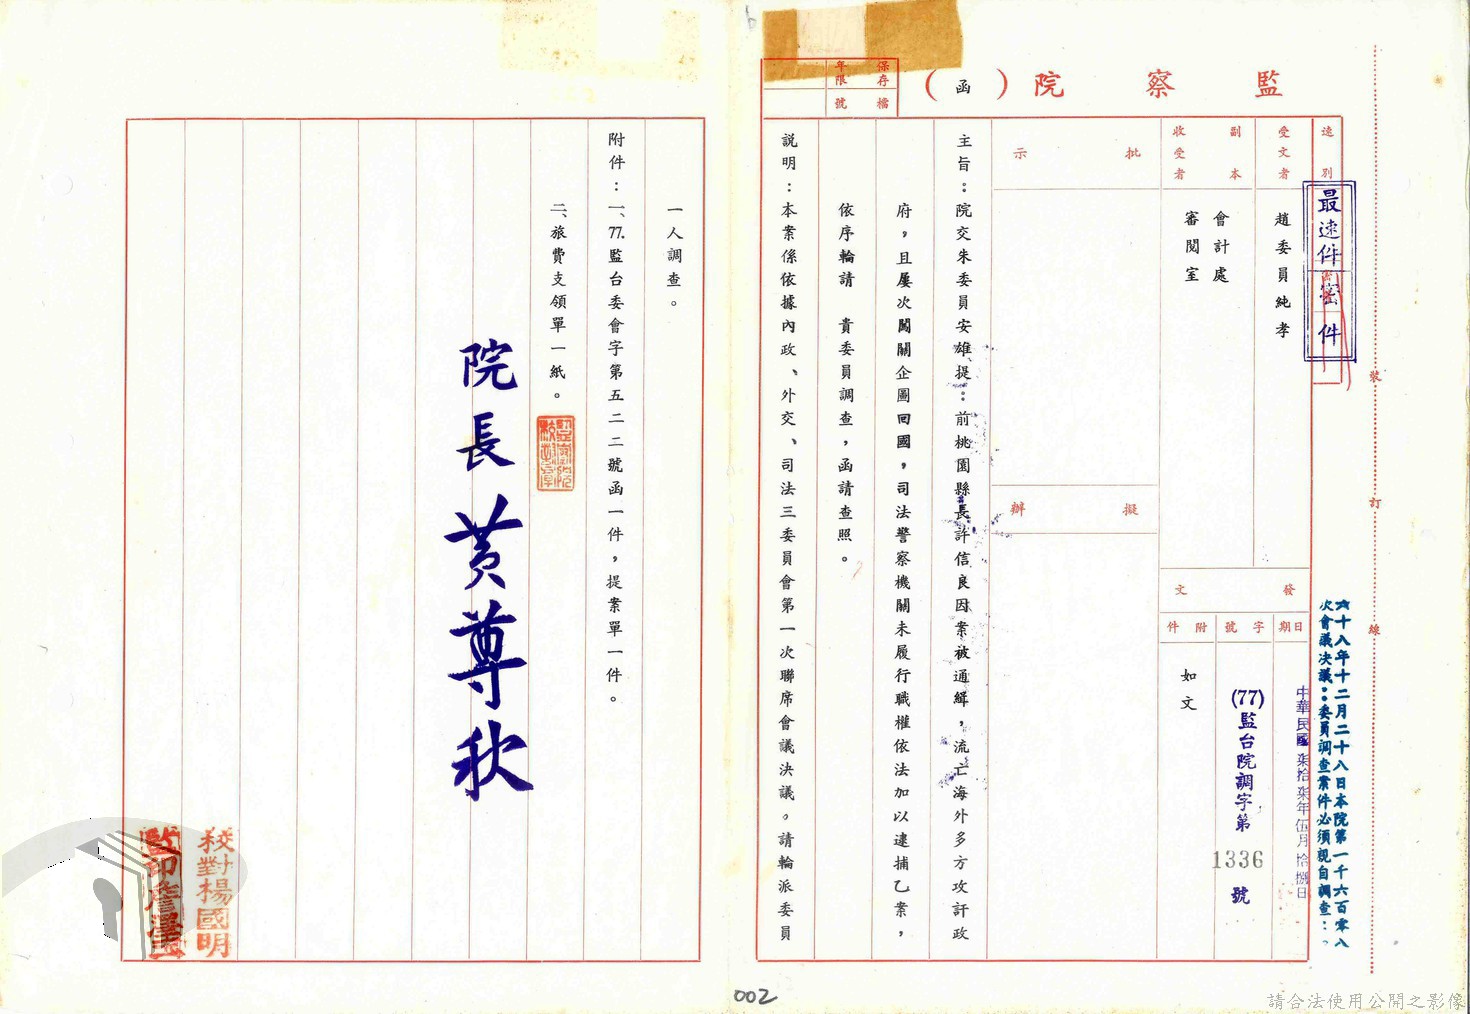 監察院(函)
保存年限
檔號
速別
最速件
密件
受文者
趙委員純孝
副本收受者
會計處
審閱室
發文
日期
中華民國柒拾柒年伍月拾捌日
字號
(77)監台院調字第1336號
附件
如文
批示
擬辦
主旨：院交朱委員安雄提：前桃園縣長許信良因案被通緝，流亡海外多方攻訐政
府，且屢次闖關企圖回國，司法警察機關未履行職權依法加以逮捕乙案，
依序輪請　貴委員調查，函請查照。
說明：本案係依據內政、外交、司法三委員會第一次聯席會議決議。請輪派委員
一人調查。
附件：一、77.監台委會字第五二二號函一件，提案單一件。
二、旅費支領單一紙。
院長黃尊秋
校對楊國明
監印
六十八年十二月二十八日本院第一千六百零八
次會議決議：委員調查案件必須親自調查：。
裝
訂
線
002
請合法使用公開之影像